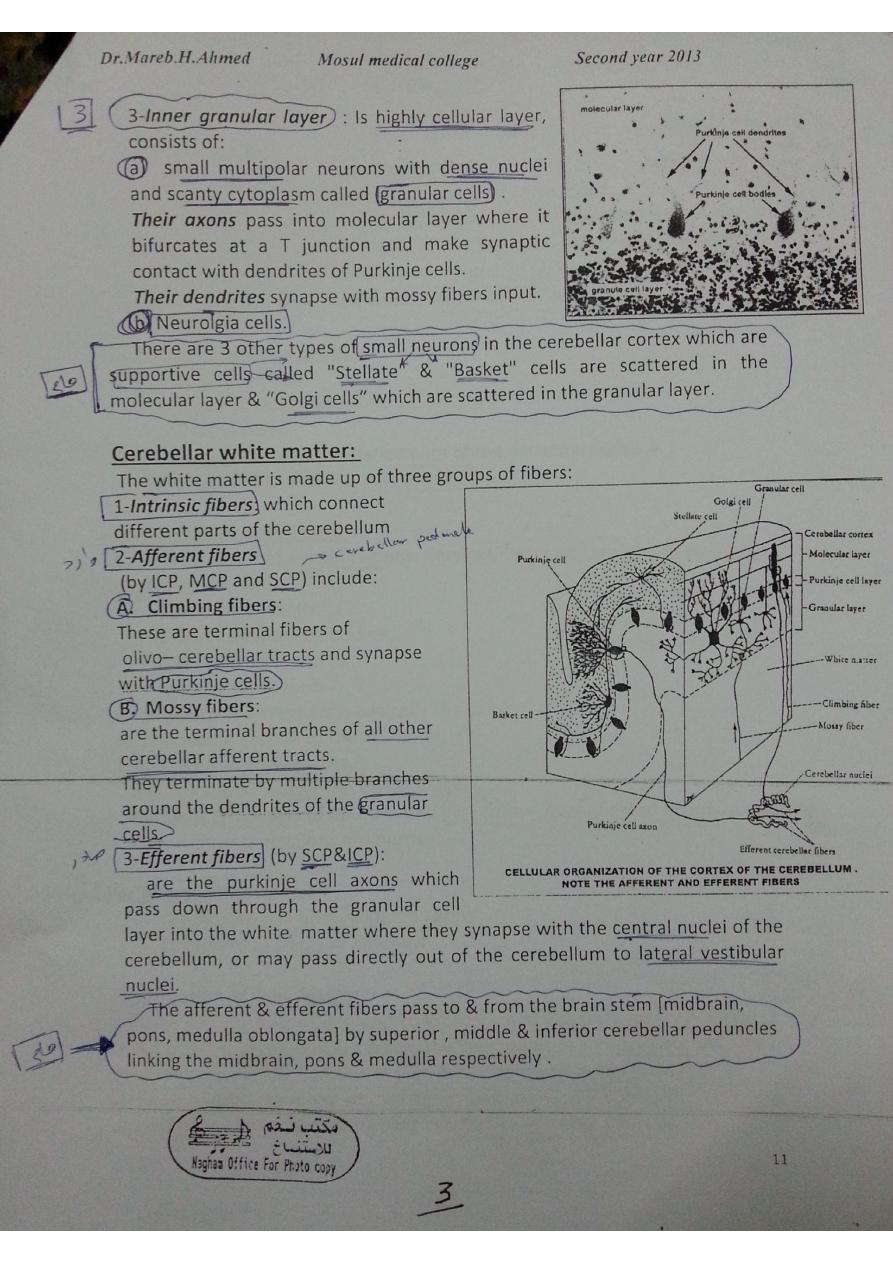 Dr.Mareb.H.Ahmed Mosul medical college Second year 2013
3
3-Inner granular layer : Is highly cellular layer,
consists of:
(a) small multipolar neurons with dense nuclei
and scanty cytoplasm called (granular cells) .
Their axons pass into molecular layer where it
bifurcates at a T junction and make synaptic
contact with dendrites of Purkinje cells.
Their dendrites synapse with mossy fibers input.
(b) Neurolgia cells.
molecular layer
Purkinje cell dendrites
Purkinje cell bodies
granule cell layer
There are 3 other types of small neurons in the cerebellar cortex which are
supportive cells called "Stellate" & "Basket" cells are scattered in the
molecular layer & “Golgi cells” which are scattered in the granular layer.
هام
Cerebellar white matter:
The white matter is made up of three groups of fibers:
1-Intrinsic fibers which connect
different parts of the cerebellum
2-Afferent fibers
→ cerebellar peduncle
(by ICP, MCP and SCP) include:
A. Climbing fibers:
These are terminal fibers of
olivo– cerebellar tracts and synapse
with Purkinje cells.
B. Mossy fibers:
are the terminal branches of all other
cerebellar afferent tracts.
They terminate by multiple branches
around the dendrites of the granular
cells.
3-Efferent fibers (by SCP&ICP):
are the purkinje cell axons which
pass down through the granular cell
layer into the white matter where they synapse with the central nuclei of the
cerebellum, or may pass directly out of the cerebellum to lateral vestibular
nuclei.
Granular cell
Golgi cell
Stellate cell
Purkinje cell
Cerebellar cortex
Molecular layer
Purkinje cell layer
Granular layer
White matter
Climbing fiber
Basket cell
Mossy fiber
Cerebellar nuclei
Purkinje cell axon
Efferent cerebellar fibers
CELLULAR ORGANIZATION OF THE CORTEX OF THE CEREBELLUM .
NOTE THE AFFERENT AND EFFERENT FIBERS
The afferent & efferent fibers pass to & from the brain stem [midbrain,
pons, medulla oblongata] by superior , middle & inferior cerebellar peduncles
linking the midbrain, pons & medulla respectively .
هام
مكتب نغم
للاستنساخ
Nagham Office For Photo copy
11
3